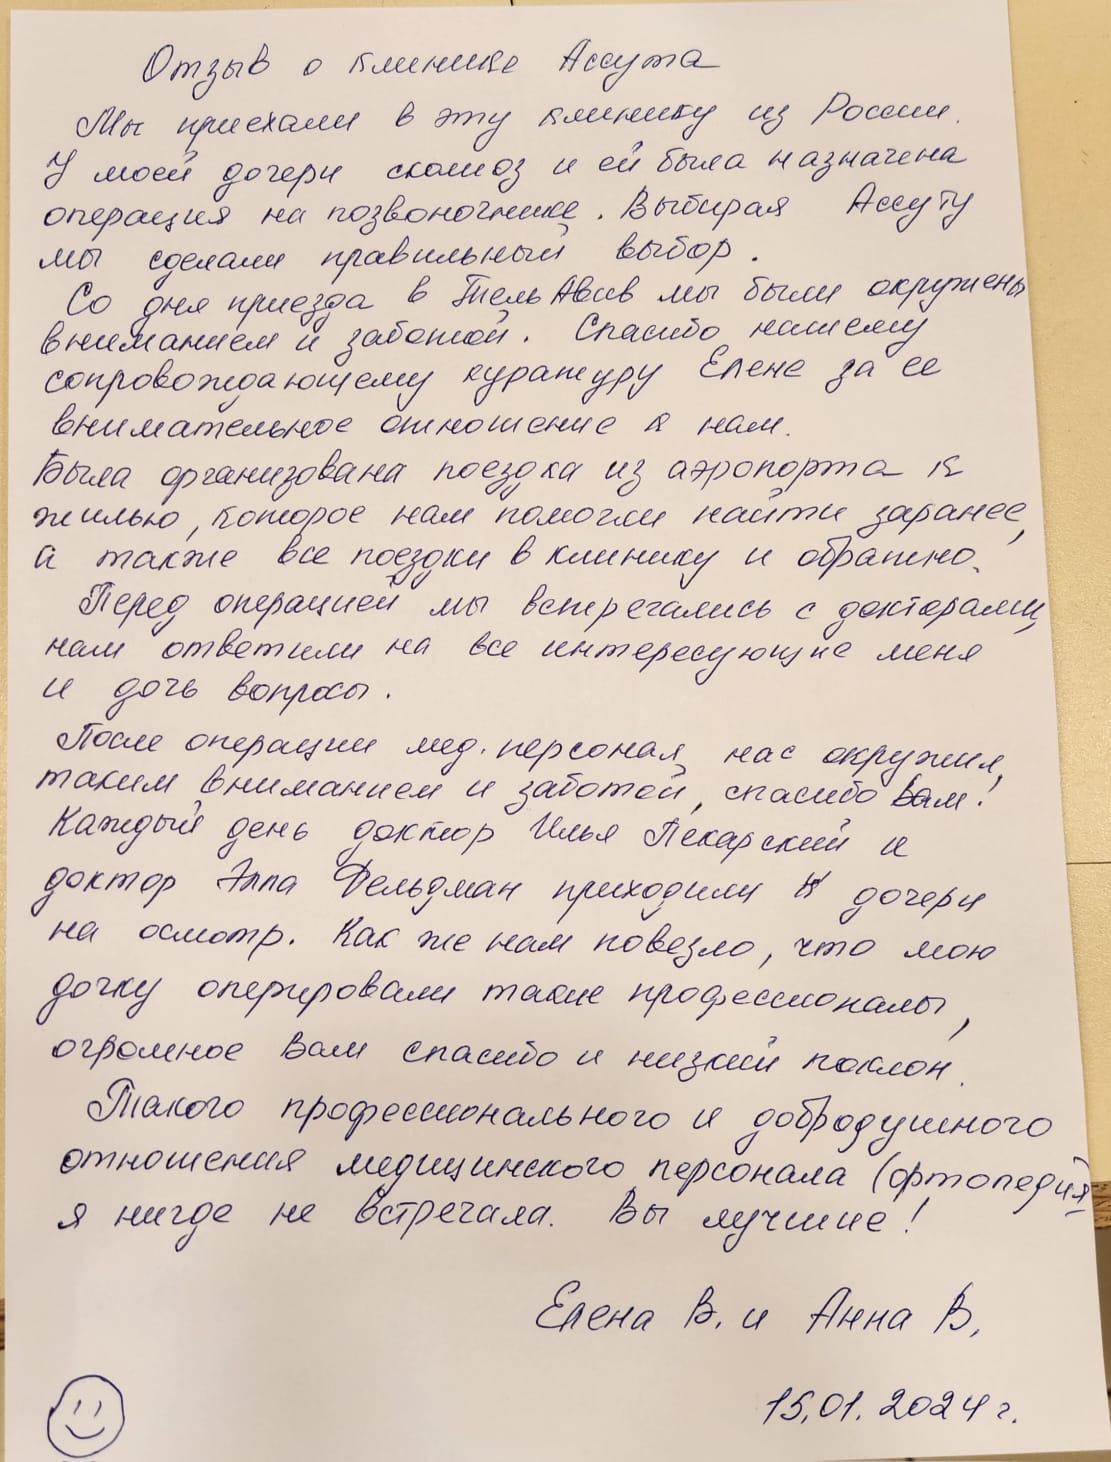 Отзыв о клинике Ассута
Мы приехали в эту клинику из России.
У моей дочери сколиоз и ей была назначена
операция на позвоночнике. Выбирая Ассуту
мы сделали правильный выбор.
Со дня приезда в Тель Авив мы были окружены
вниманием и заботой. Спасибо нашему
сопровождающему куратуру Елене за ее
внимательное отношение к нам.
Была организована поездка из аэропорта к
жилью, которое нам помогли найти заранее,
а также все поездки в клинику и обратно.
Перед операцией мы встречались с докторами,
нам ответили на все интересующие меня
и дочь вопросы.
После операции мед. персонал нас окружил
таким вниманием и заботой, спасибо Вам!
Каждый день доктор Илья Пекарский и
доктор Элла Фельдман приходили к дочери
на осмотр. Как же нам повезло, что мою
дочку оперировали такие профессионалы,
огромное Вам спасибо и низкий поклон.
Такого профессионального и добродушного
отношения медицинского персонала (ортопедия)
я нигде не встречала. Вы лучшие!
Елена В. и Анна В.
15.01.2024 г.